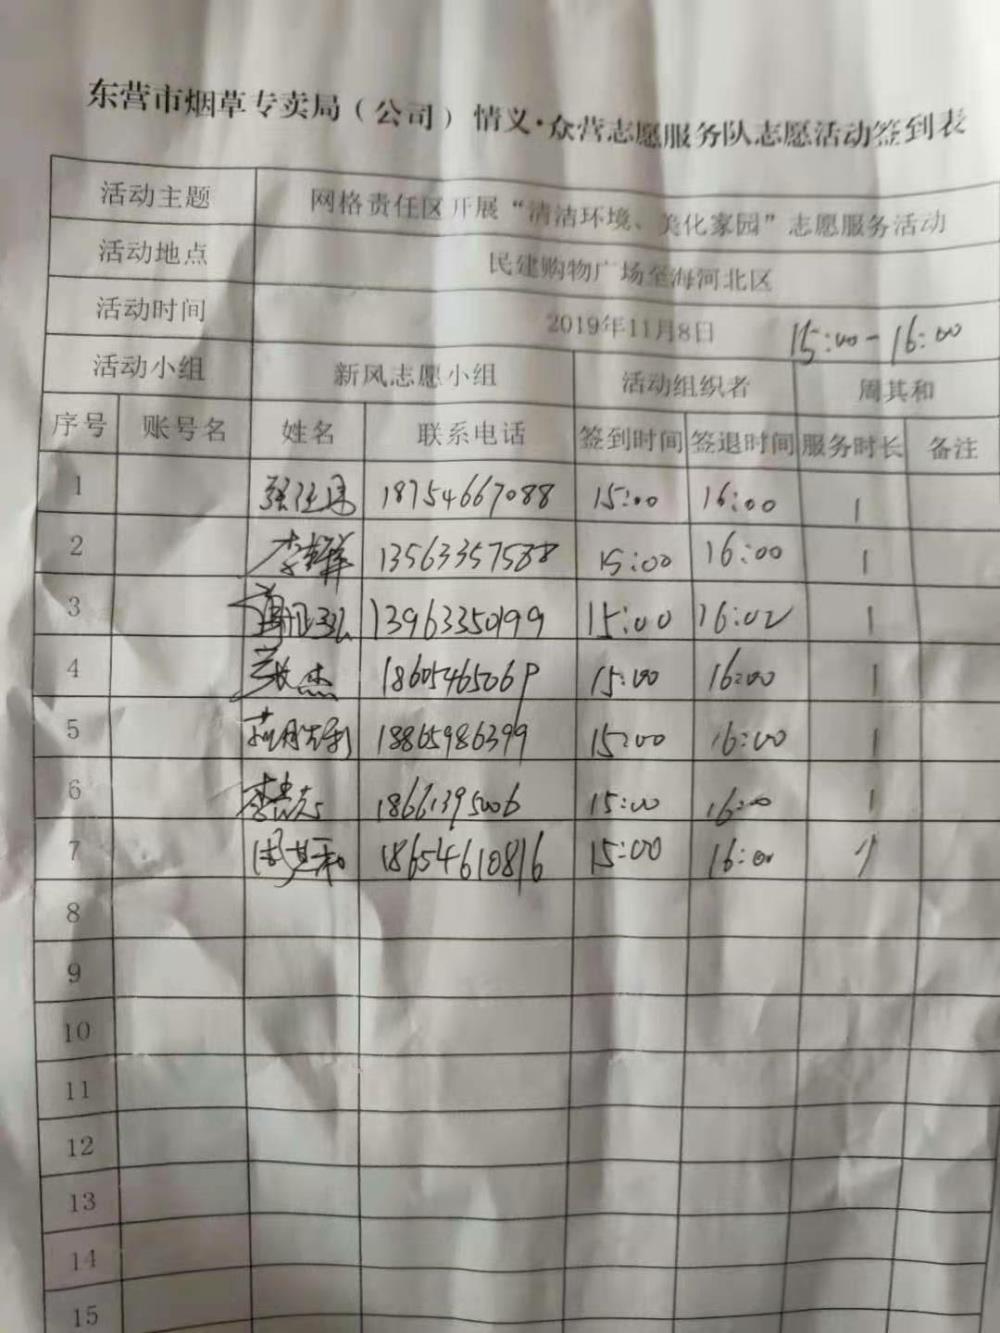 东营市烟草专卖局（公司）情义·众营志愿服务队志愿活动签到表
活动主题 网格责任区开展“清洁环境、美化家园”志愿服务活动
活动地点 民建购物广场至海河北区
活动时间 2019年11月8日 15:00-16:00
活动小组 新风志愿小组 活动组织者 周其和
序号 账号名 姓名 联系电话 签到时间 签退时间 服务时长 备注
1 18754667088 15:00 16:00 1
2 13563357588 15:00 16:00 1
3 13963350199 15:00 16:02 1
4 张杰 15:00 16:00 1
5 18865986399 15:00 16:00 1
6 18661395006 15:00 16:00 1
7 周其和 18654610816 15:00 16:00 1
8
9
10
11
12
13
14
15